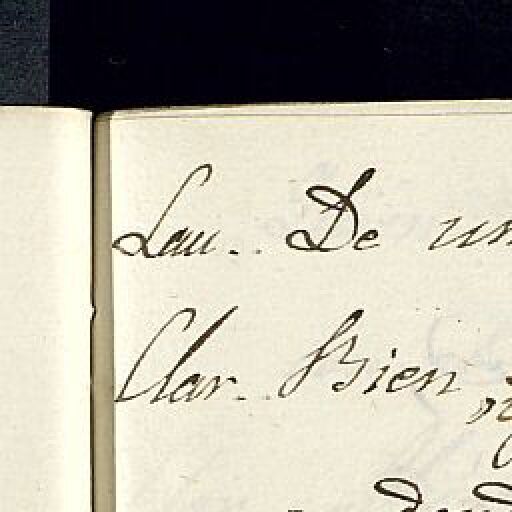 Lau. . De un
Clar. . Bien,